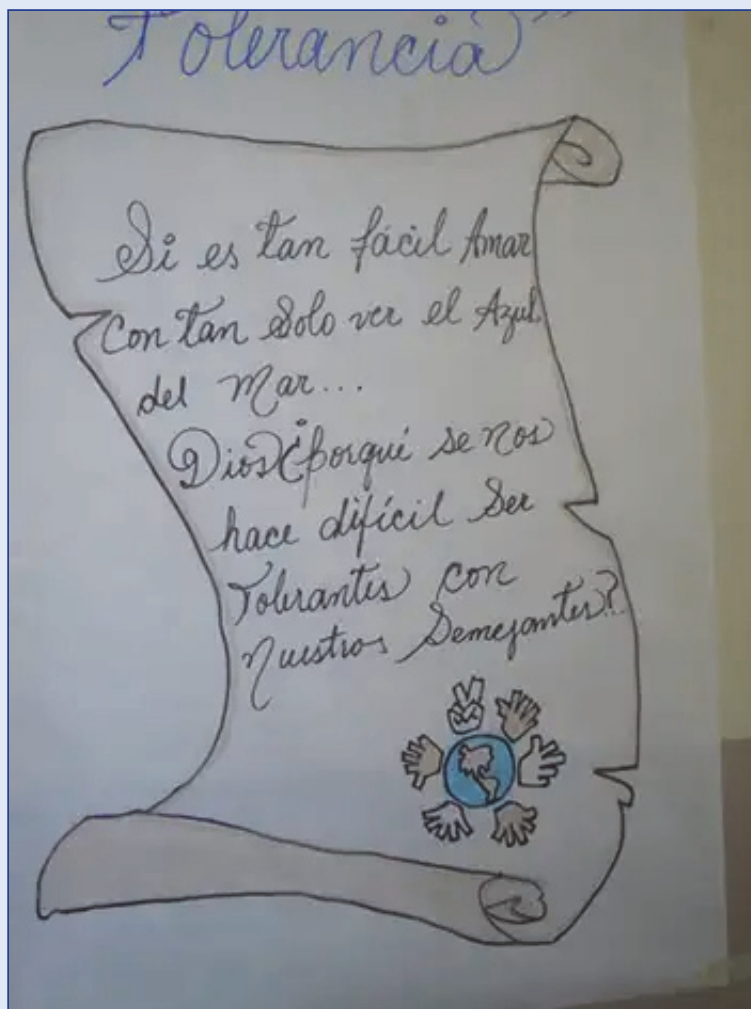 Tolerancia"
Si es tan fácil Amar
Con tan Solo ver el Azul
del Mar...
Dios ¿porqué se nos
hace difícil Ser
Tolerantes con
nuestros Semejantes?